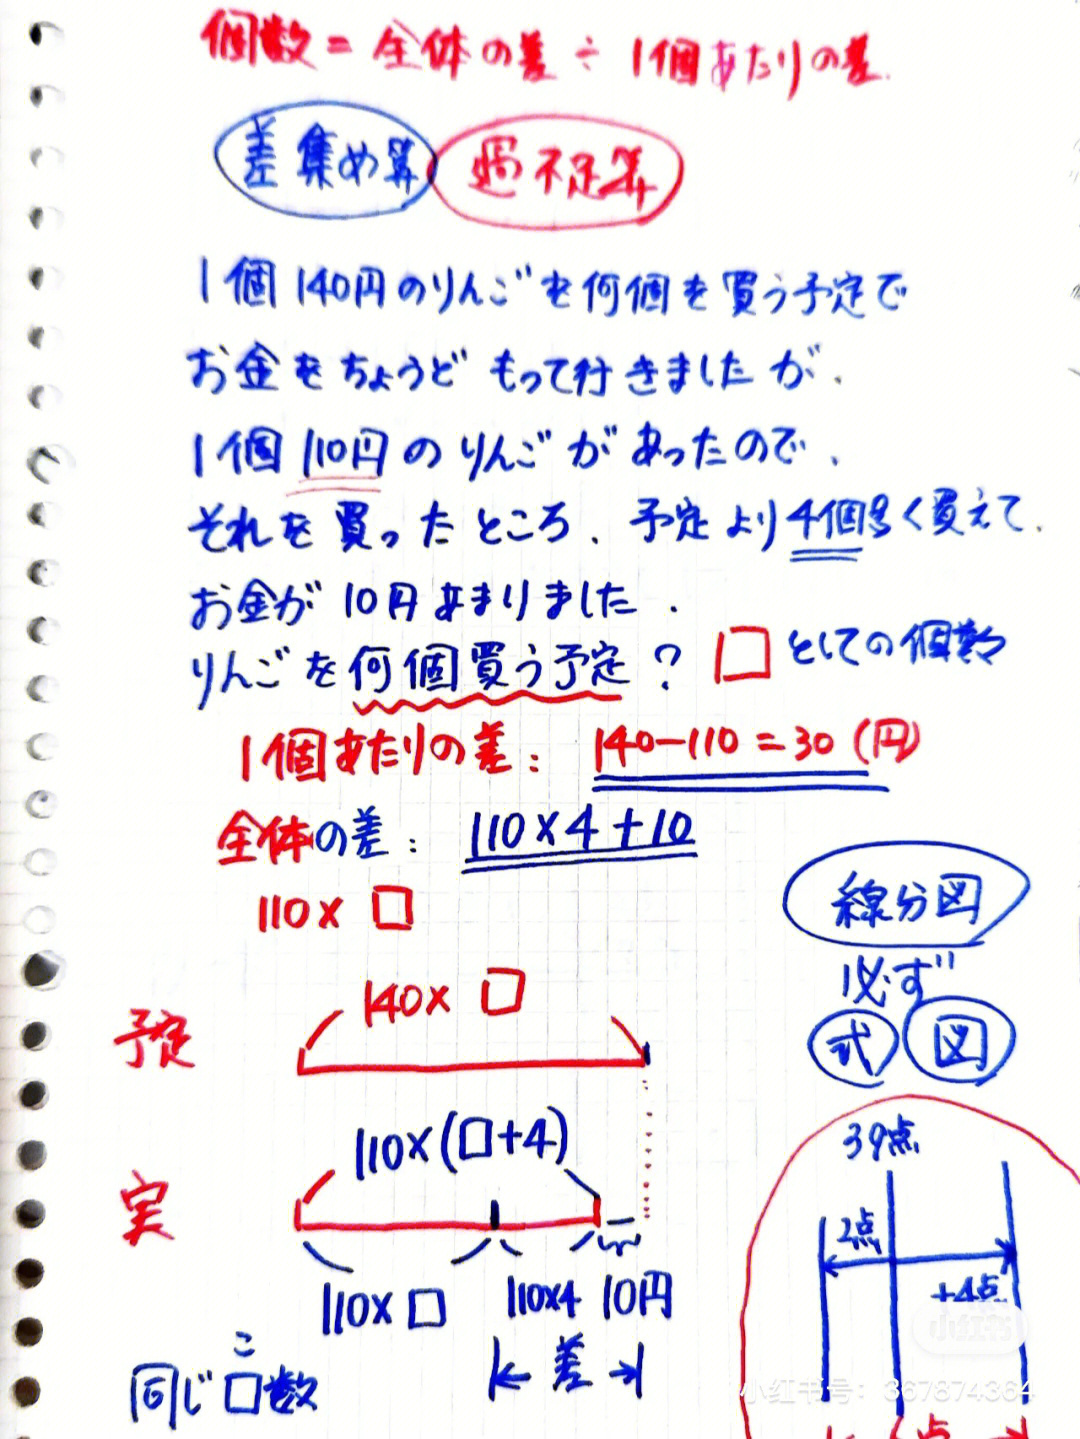 個数 = 全体の差 ÷ 1個あたりの差.
差集め算 過不足算
1個140円のりんごを何個を買う予定で
お金をちょうどもって行きましたが.
1個110円のりんごがあったので.
それを買ったところ. 予定より4個多く買えて.
お金が10円あまりました.
りんごを何個買う予定? □としての個数
1個あたりの差: 140-110=30(円)
全体の差: 110×4+10
110×□
線分図
必ず
式 図
140×□
予定
110×(□+4)
実
110×□ 110×4 10円
差
こ
同じ□数
39点
2点
+4点
小红书
小红书号: 367874364